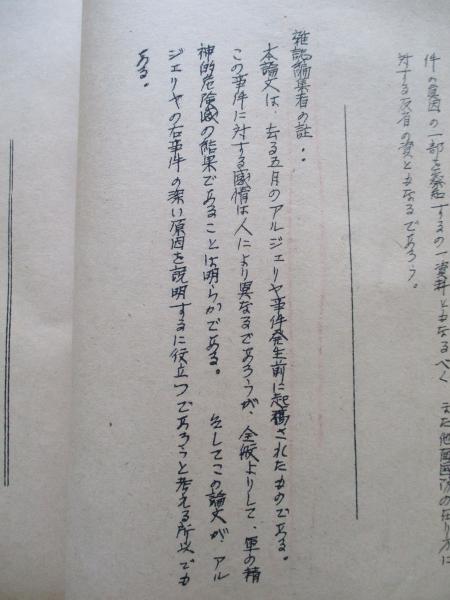 件の原因の一部を発するの一資料ともなるべく また他面国防の在り方に
対する反省の資ともなるであろう。
雑誌編集者の註：
本論文は、去る五月のアルジェリヤ事件発生前に起稿されたものである。
この事件に対する感情は人により異なるであろうが、全般よりして、軍の精
神的危険感の結果であることは明らかである。 そしてこの論文が、アル
ジェリヤの右事件の深い原因を説明するに役立つであろうと考える所以でも
ある。